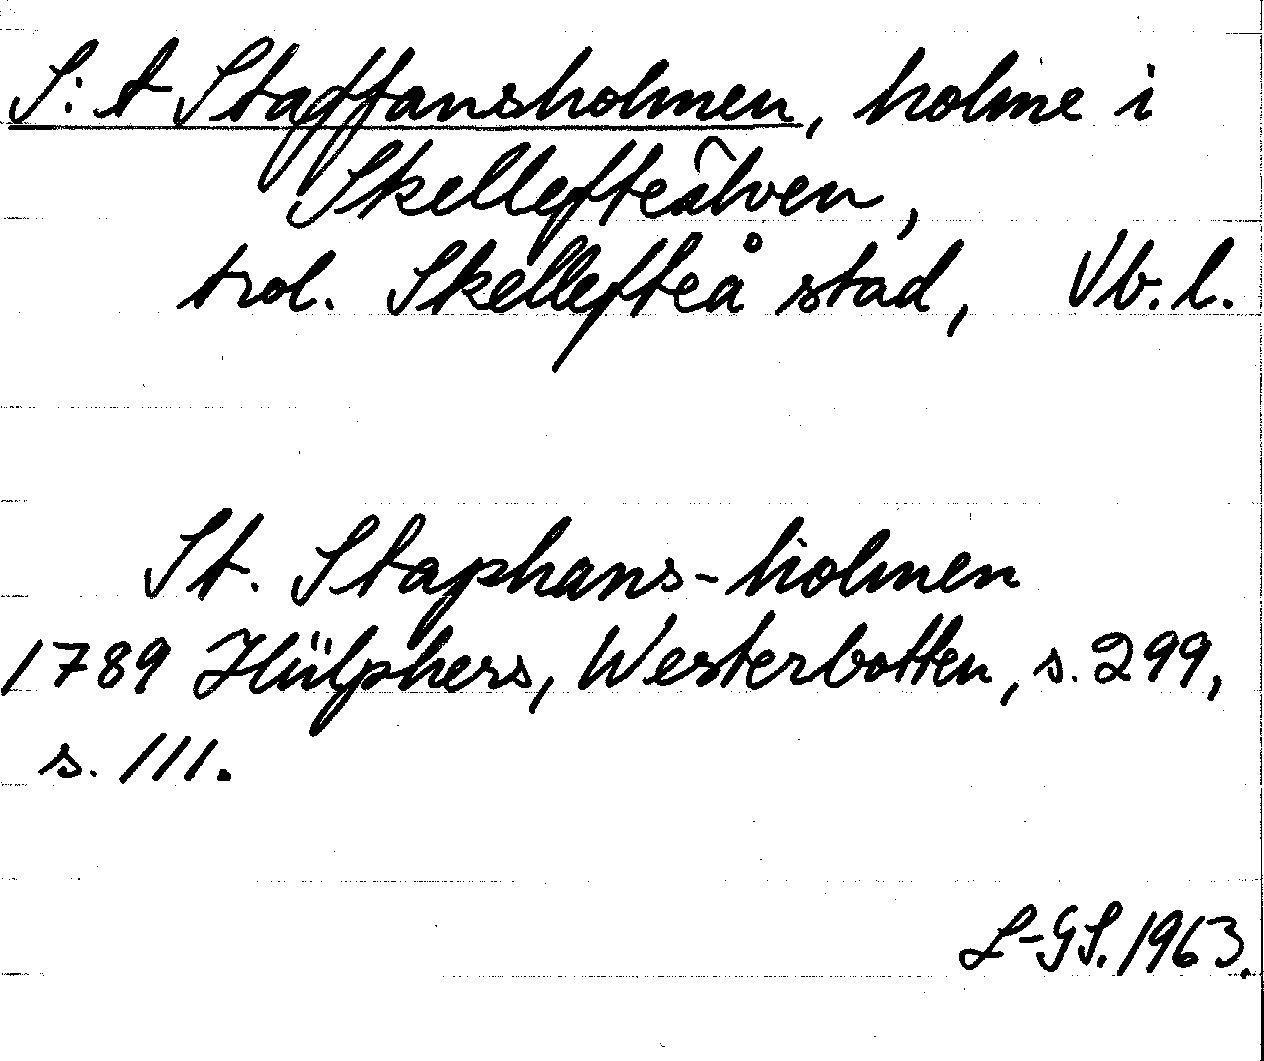 S:t Staffansholmen, holme i
Skellefteälven,
trol. Skellefteå stad, Vb. l.
St. Staphans-holmen
1789 Hülphers, Westerbotten, s. 299,
s. 111.
L-GS. 1963.